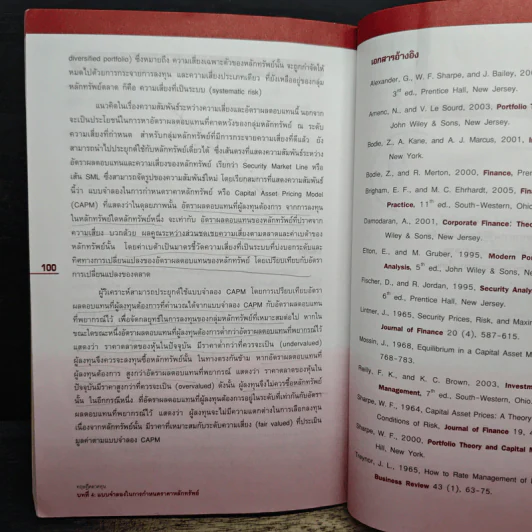 diversified portfolio) ซึ่งหมายถึง ความเสี่ยงเฉพาะตัวของหลักทรัพย์นั้น จะถูกกำจัดได้
หมดไปด้วยการกระจายการลงทุน และความเสี่ยงประเภทเดียว ที่ยังเหลืออยู่ของกลุ่ม
หลักทรัพย์ตลาด ก็คือ ความเสี่ยงที่เป็นระบบ (systematic risk)
แนวคิดในเรื่องความสัมพันธ์ระหว่างความเสี่ยงและอัตราผลตอบแทนนี้ นอกจาก
จะเป็นประโยชน์ในการหาอัตราผลตอบแทนที่คาดหวังของกลุ่มหลักทรัพย์ ณ ระดับ
ความเสี่ยงที่กำหนด สำหรับกลุ่มหลักทรัพย์ที่มีการกระจายความเสี่ยงที่ดีแล้ว ยัง
สามารถนำไปประยุกต์ใช้กับหลักทรัพย์เดี่ยวได้ ซึ่งเส้นตรงที่แสดงความสัมพันธ์ระหว่าง
อัตราผลตอบแทนและความเสี่ยงของหลักทรัพย์ เรียกว่า Security Market Line หรือ
เส้น SML ซึ่งสามารถจัดรูปของความสัมพันธ์ใหม่ โดยเรียกสมการที่แสดงความสัมพันธ์
นี้ว่า แบบจำลองในการกำหนดราคาหลักทรัพย์ หรือ Capital Asset Pricing Model
(CAPM) ที่แสดงว่าในดุลยภาพนั้น อัตราผลตอบแทนที่ผู้ลงทุนต้องการ จากการลงทุน
ในหลักทรัพย์ใดหลักทรัพย์หนึ่ง จะเท่ากับ อัตราผลตอบแทนของหลักทรัพย์ที่ปราศจาก
ความเสี่ยง บวกด้วย ผลคูณระหว่างส่วนชดเชยความเสี่ยงตามตลาดและค่าเบต้าของ
หลักทรัพย์นั้น โดยค่าเบต้าเป็นมาตรชี้วัดความเสี่ยงที่เป็นระบบที่บ่งบอกระดับและ
ทิศทางการเปลี่ยนแปลงของอัตราผลตอบแทนของหลักทรัพย์ โดยเปรียบเทียบกับอัตรา
การเปลี่ยนแปลงของตลาด
100
ผู้วิเคราะห์สามารถประยุกต์ใช้แบบจำลอง CAPM โดยการเปรียบเทียบอัตรา
ผลตอบแทนที่ผู้ลงทุนต้องการที่คำนวณได้จากแบบจำลอง CAPM กับอัตราผลตอบแทน
ที่พยากรณ์ไว้ เพื่อจัดกลยุทธ์ในการลงทุนของกลุ่มหลักทรัพย์ที่เหมาะสมต่อไป หากใน
ขณะใดขณะหนึ่งอัตราผลตอบแทนที่ผู้ลงทุนต้องการต่ำกว่าอัตราผลตอบแทนที่พยากรณ์ไว้
แสดงว่า ราคาตลาดของหุ้นในปัจจุบัน มีราคาต่ำกว่าที่ควรจะเป็น (undervalued)
ผู้ลงทุนจึงควรจะลงทุนซื้อหลักทรัพย์นั้น ในทางตรงกันข้าม หากอัตราผลตอบแทนที่
ผู้ลงทุนต้องการ สูงกว่าอัตราผลตอบแทนที่พยากรณ์ แสดงว่า ราคาตลาดของหุ้นใน
ปัจจุบันมีราคาสูงกว่าที่ควรจะเป็น (overvalued) ดังนั้น ผู้ลงทุนจึงไม่ควรซื้อหลักทรัพย์
นั้น ในอีกกรณีหนึ่ง ถ้าอัตราผลตอบแทนที่ผู้ลงทุนต้องการอยู่ในระดับที่เท่ากันกับอัตรา
ผลตอบแทนที่พยากรณ์ไว้ แสดงว่า ผู้ลงทุนจะไม่มีความแตกต่างในการเลือกลงทุน
เนื่องจากหลักทรัพย์นั้น มีราคาที่เหมาะสมกับระดับความเสี่ยง (fair valued) ที่ประเมิน
มูลค่าตามแบบจำลอง CAPM
ทฤษฎีตลาดทุน
บทที่ 4: แบบจำลองในการกำหนดราคาหลักทรัพย์
เอกสารอ้างอิง
Alexander, G., W. F. Sharpe, and J. Bailey, 20
3rd ed., Prentice Hall, New Jersey.
Amenc, N., and V. Le Sourd, 2003, Portfolio T
John Wiley & Sons, New Jersey.
Bodie, Z., A. Kane, and A. J. Marcus, 2001,
New York.
Bodie, Z., and R. Merton, 2000, Finance, Pren
Brigham, E. F., and M. C. Ehrhardt, 2005, Fina
Practice, 11th ed., South-Western, Ohio.
Damodaran, A., 2001, Corporate Finance: Theo
Wiley & Sons, New Jersey.
Elton, E., and M. Gruber, 1995, Modern Por
Analysis, 5th ed., John Wiley & Sons, New
Fischer, D., and R. Jordan, 1995, Security Analy
6th ed., Prentice Hall, New Jersey.
Lintner, J., 1965, Security Prices, Risk, and Maxim
Journal of Finance 20 (4), 587-615.
Mossin, J., 1968, Equilibrium in a Capital Asset M
768-783.
Reilly, F. K., and K. C. Brown, 2003, Investm
Management, 7th ed., South-Western, Ohio.
Sharpe, W. F., 1964, Capital Asset Prices: A Theory
Conditions of Risk, Journal of Finance 19, 4
Sharpe, W. F., 2000, Portfolio Theory and Capital M
Hill, New York.
Treynor, J. L., 1965, How to Rate Management of I
Business Review 43 (1), 63-75.